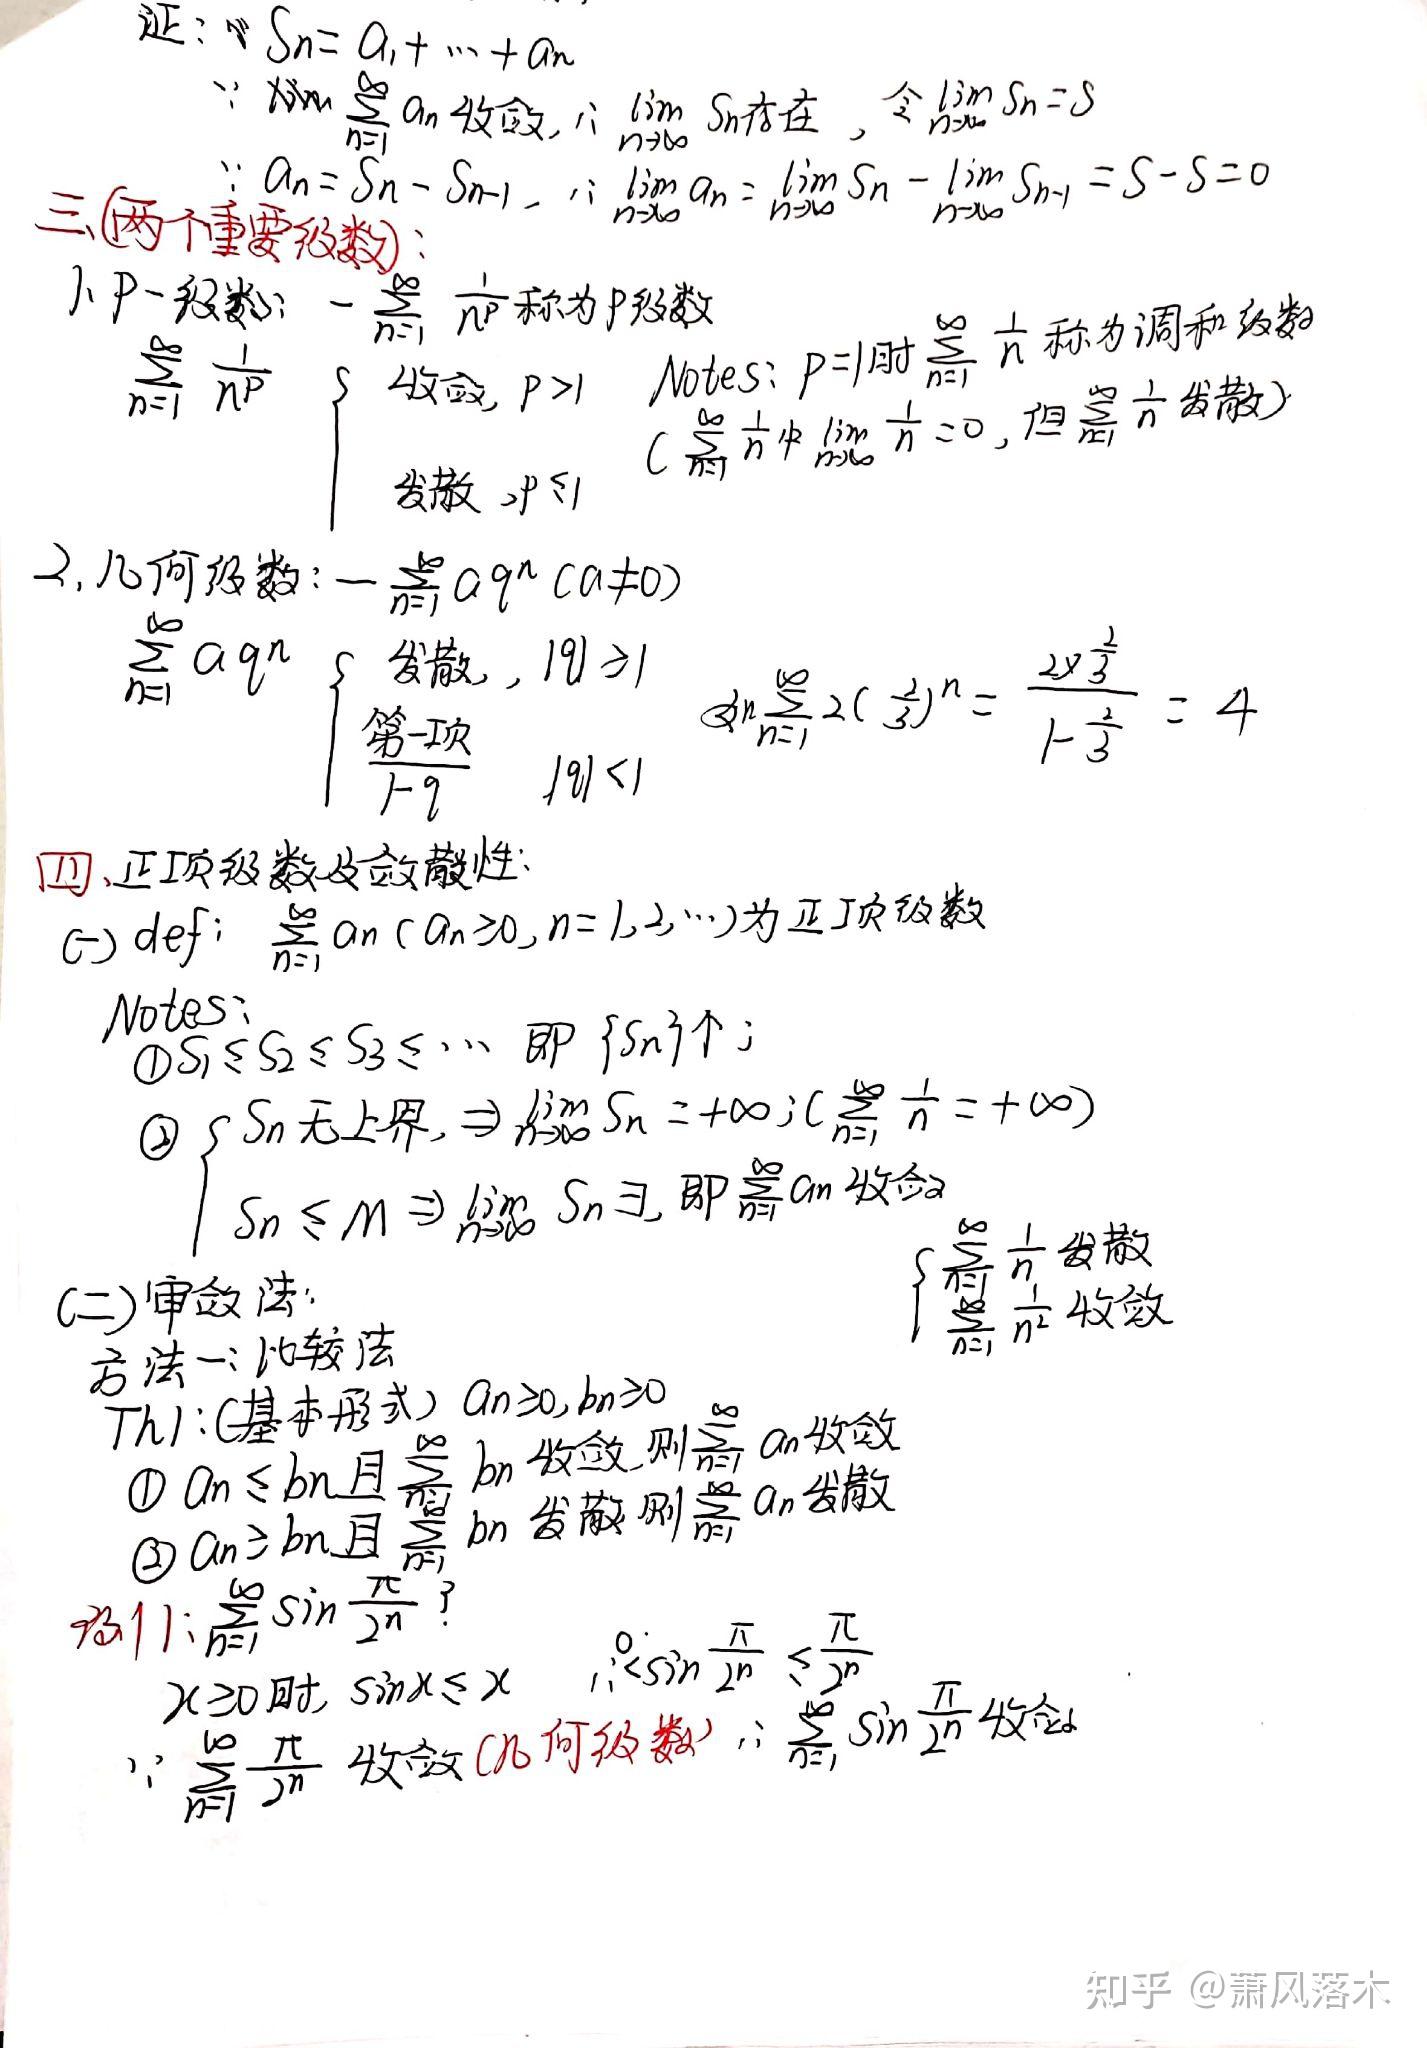 证: Sn = a₁ + … + an
∵ ∑_{n=1}^{∞} an 收敛, ∴ lim_{n→∞} Sn存在, 令 lim_{n→∞} Sn = S
∵ an = Sn - Sn-1, ∴ lim_{n→∞} an = lim_{n→∞} Sn - lim_{n→∞} Sn-1 = S - S = 0
三、(两个重要级数):
1、P-级数: — ∑_{n=1}^{∞} 1/n^p 称为P级数
∑_{n=1}^{∞} 1/n^p { 收敛, p>1
发散, p≤1
Notes: p=1时 ∑_{n=1}^{∞} 1/n 称为调和级数
( ∑_{n=1}^{∞} 1/n 中 lim_{n→∞} 1/n = 0, 但 ∑_{n=1}^{∞} 1/n 发散)
2. 几何级数: — ∑_{n=1}^{∞} aq^n (a≠0)
∑_{n=1}^{∞} aq^n { 发散, |q|≥1
第一项/(1-q) |q|<1
如 ∑_{n=1}^{∞} 2(2/3)^n = (2×2/3)/(1-2/3) = 4
四、正项级数及敛散性:
(一) def: ∑_{n=1}^{∞} an (an≥0, n=1,2,…)为正项级数
Notes:
① S₁≤S₂≤S₃≤… 即 {Sn}↑;
② { Sn无上界, ⇒ lim_{n→∞} Sn = +∞; ( ∑_{n=1}^{∞} 1/n = +∞)
Sn ≤ M ⇒ lim_{n→∞} Sn ∃, 即 ∑_{n=1}^{∞} an 收敛
{ ∑_{n=1}^{∞} 1/n 发散
∑_{n=1}^{∞} 1/n² 收敛
(二) 审敛法:
方法一: 比较法
Th1: (基本形式) an≥0, bn≥0
① an ≤ bn 且 ∑_{n=1}^{∞} bn 收敛, 则 ∑_{n=1}^{∞} an 收敛
② an ≥ bn 且 ∑_{n=1}^{∞} bn 发散, 则 ∑_{n=1}^{∞} an 发散
例1: ∑_{n=1}^{∞} sin π/2^n ?
x≥0时, sinx ≤ x ∴ 0<sin π/2^n ≤ π/2^n
∵ ∑_{n=1}^{∞} π/2^n 收敛(几何级数) ∴ ∑_{n=1}^{∞} sin π/2^n 收敛
知乎 @萧风落木